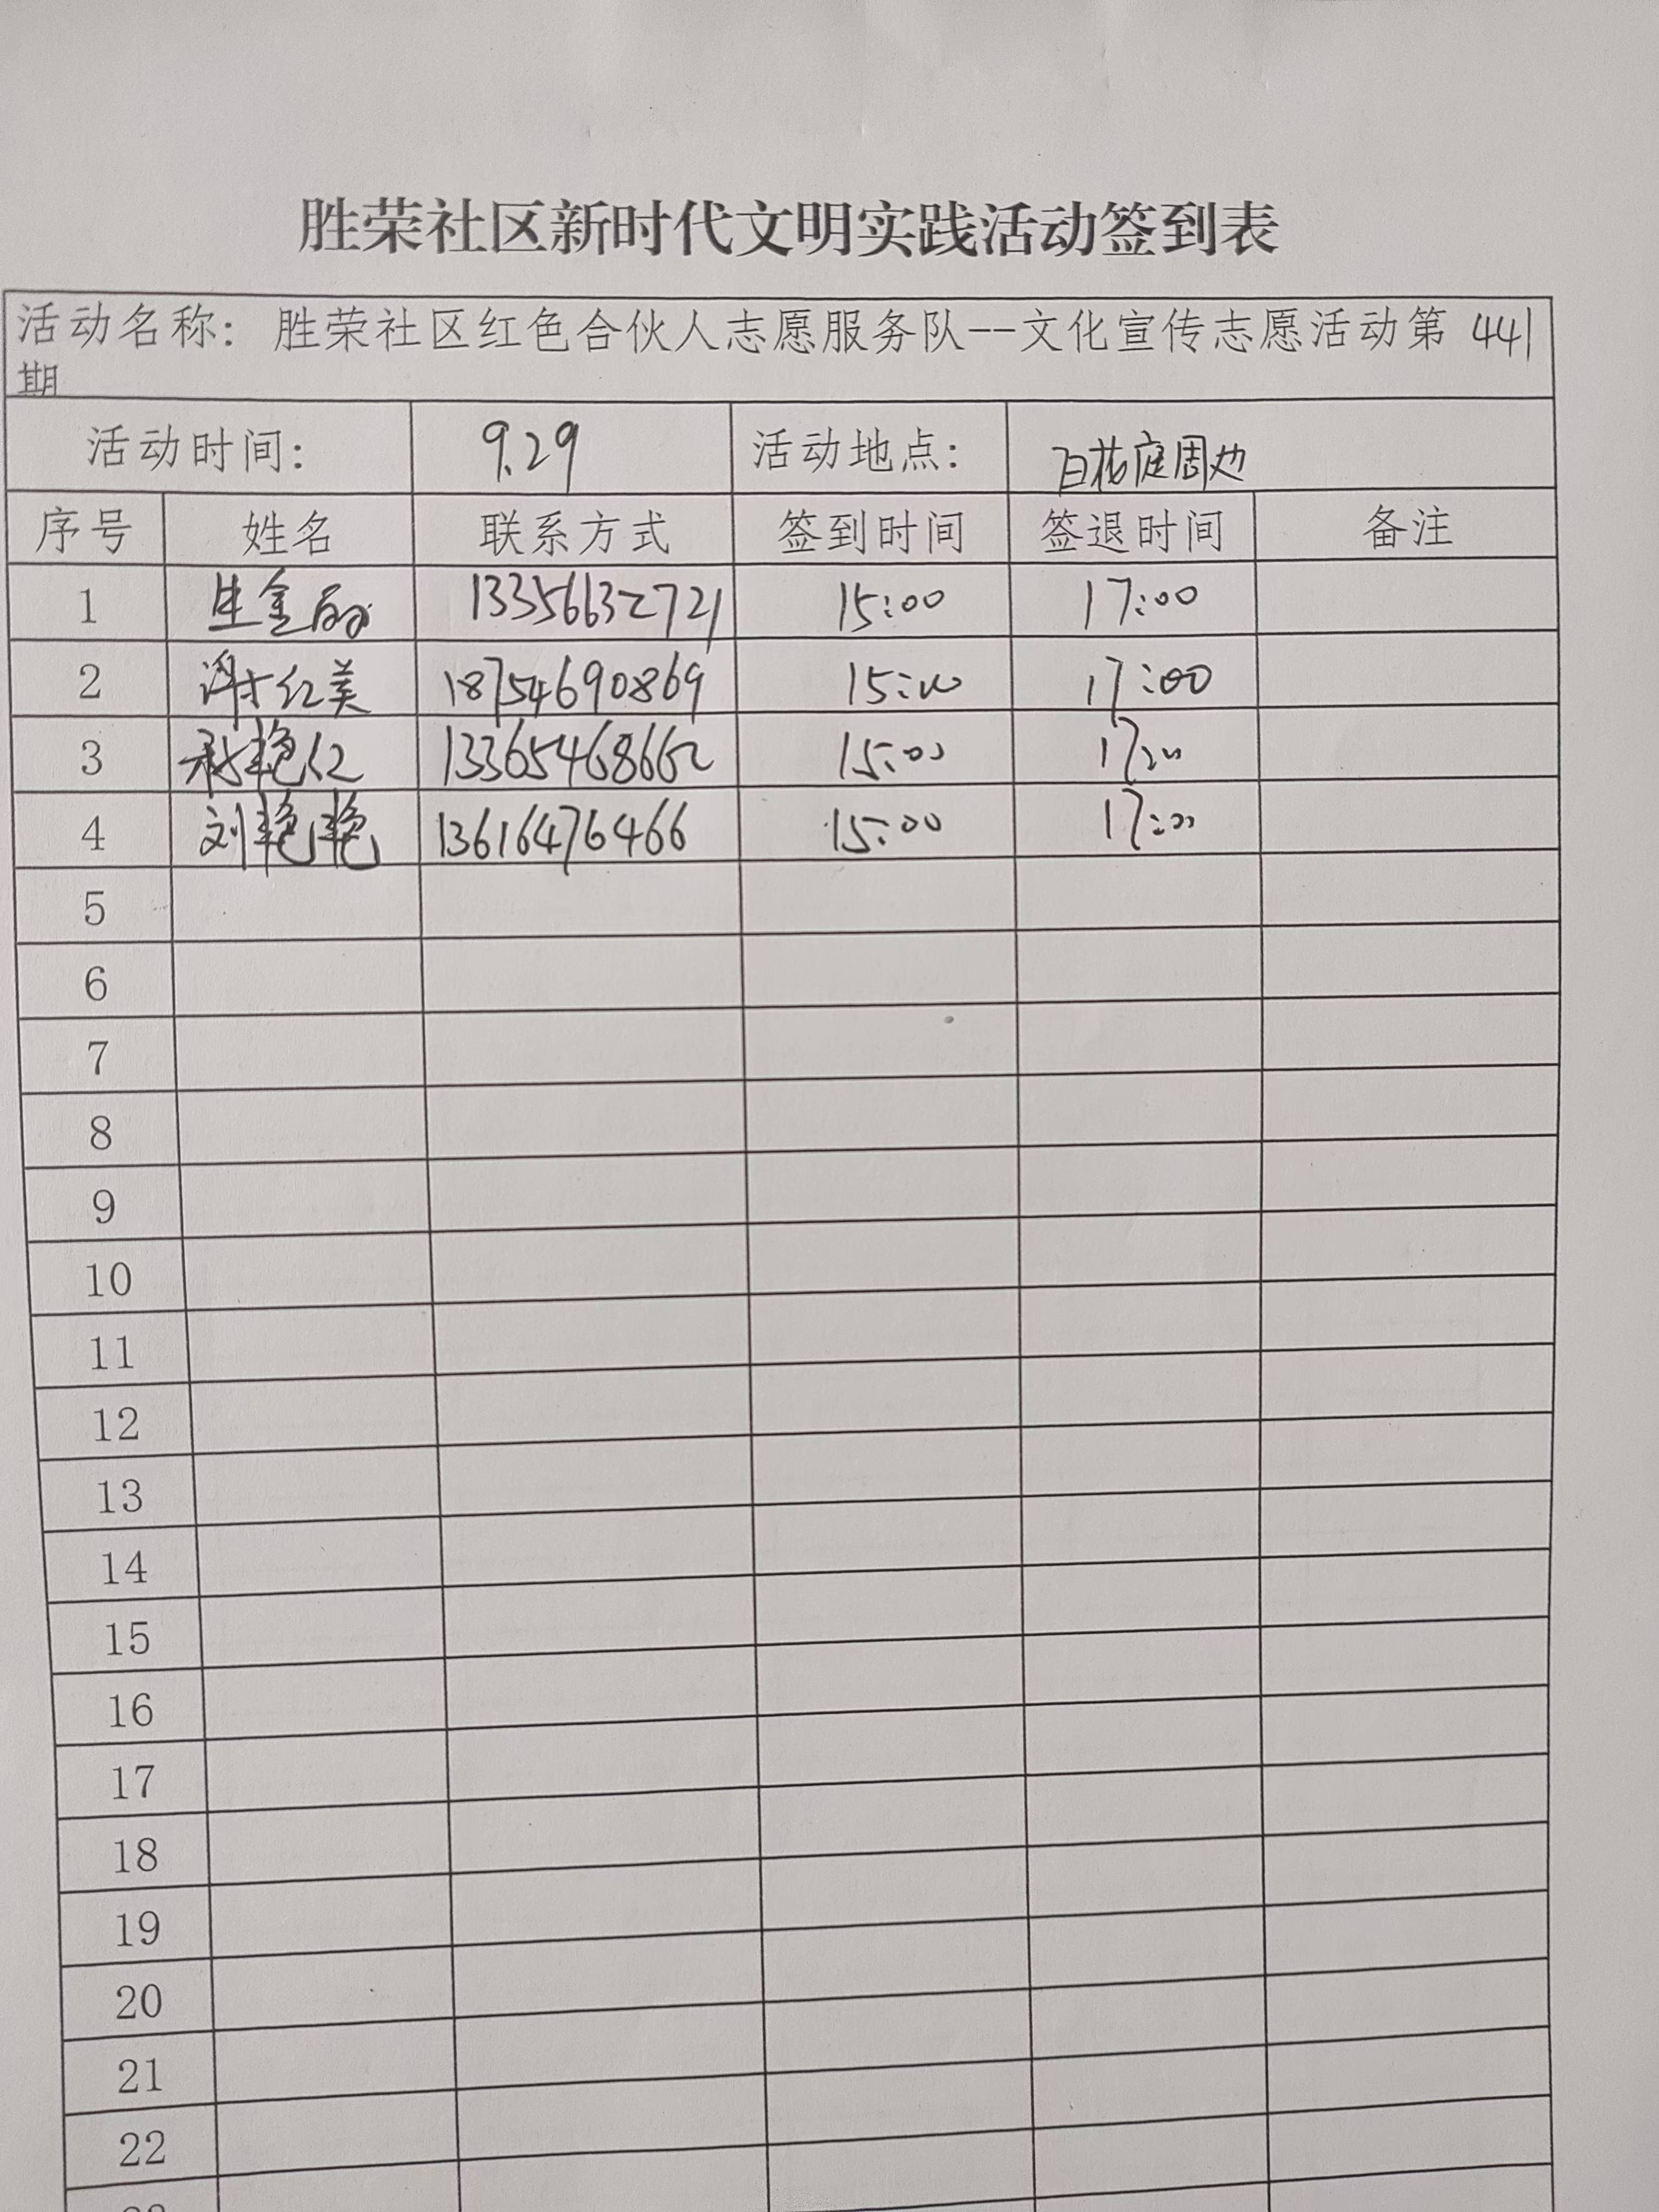 胜荣社区新时代文明实践活动签到表
活动名称: 胜荣社区红色合伙人志愿服务队--文化宣传志愿活动第 441
期
活动时间: 9.29 活动地点: 百花庭周边
序号 姓名 联系方式 签到时间 签退时间 备注
1 13356632721 15:00 17:00
2 谢红美 18754690869 15:00 17:00
3 13365468662 15:00 17:00
4 刘艳艳 13616476466 15:00 17:00
5
6
7
8
9
10
11
12
13
14
15
16
17
18
19
20
21
22